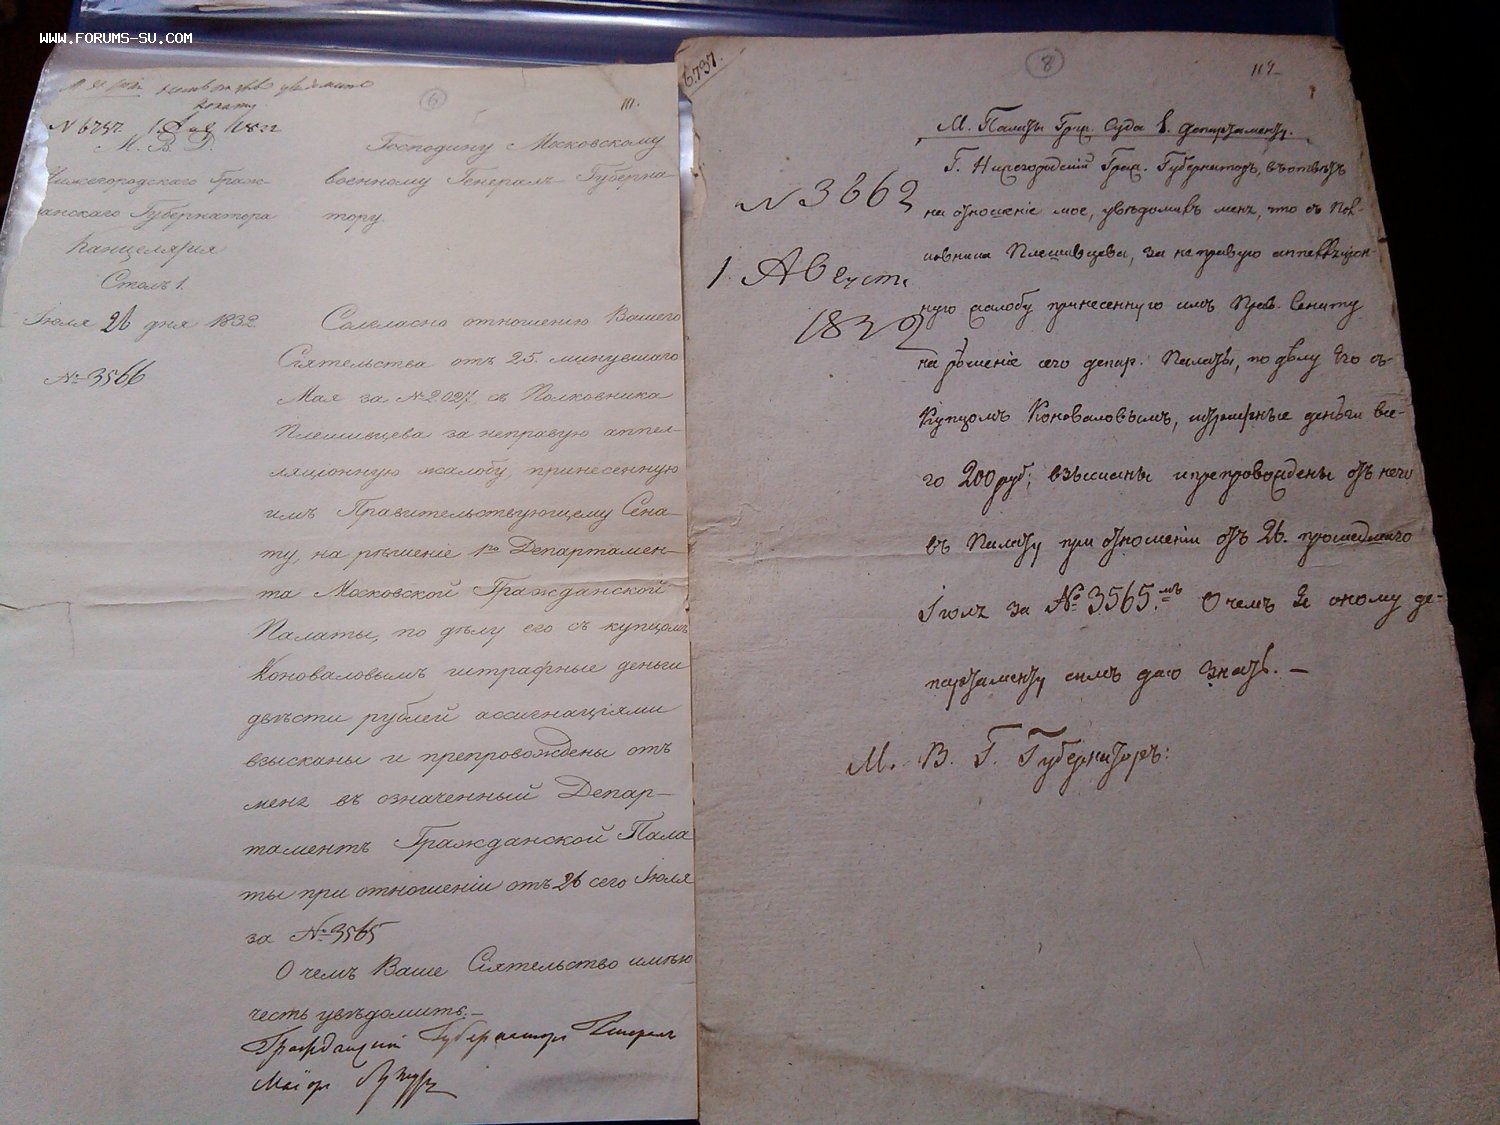 WWW.FORUMS-SU.COM
6
111.
N 6737 1. Авг 1832
М. В. Д.
Нижегородскаго Граж-
данскаго Губернатора
Канцелярия
Столъ 1.
Июля 26 дня 1832
№ 3566
Господину Московскому
военному Генералъ Губерна
тору.
Согласно отношению Вашего
Сіятельства отъ 25 минувшаго
Мая за № 2.027, съ Полковника
Плешивцева за неправую аппел-
ляціонную жалобу принесенную
имъ Правительствующему Сена-
ту, на рѣшеніе 1го Департамен-
та Московской Гражданской
Палаты, по дѣлу его съ купцомъ
Коноваловымъ штрафные деньги
двѣсти рублей ассигнаціями
взысканы и препровождены отъ
меня въ означенный Депар-
таментъ Гражданской Пала
ты при отношеніи отъ 26 сего Июля
за № 3565
О чемъ Ваше Сіятельство имѣю
честь увѣдомить.—
Гражданскій Губернаторъ Генералъ
Маіоръ
6.737.
8
112
М. Палаты Граж. Суда 1. департаменту.
N 3662
1. Августа
1832
Г. Нижегородскій Граж. Губернаторъ, въ отвѣтъ
на отношеніе мое, увѣдомилъ меня, что съ Пол-
ковника Плешивцева, за неправую аппелляціон-
ную жалобу принесенную имъ Прав. Сенату
на рѣшеніе сего депар. Палаты, по дѣлу его съ
Купцомъ Коноваловымъ, штрафные деньги все-
го 200 руб; взысканы и препровождены отъ него
въ Палату при отношеніи отъ 26. прошедшаго
Іюля за № 3565.мъ О чемъ я оному де-
партаменту симъ даю знать. —
М. В. Г. Губернаторъ: